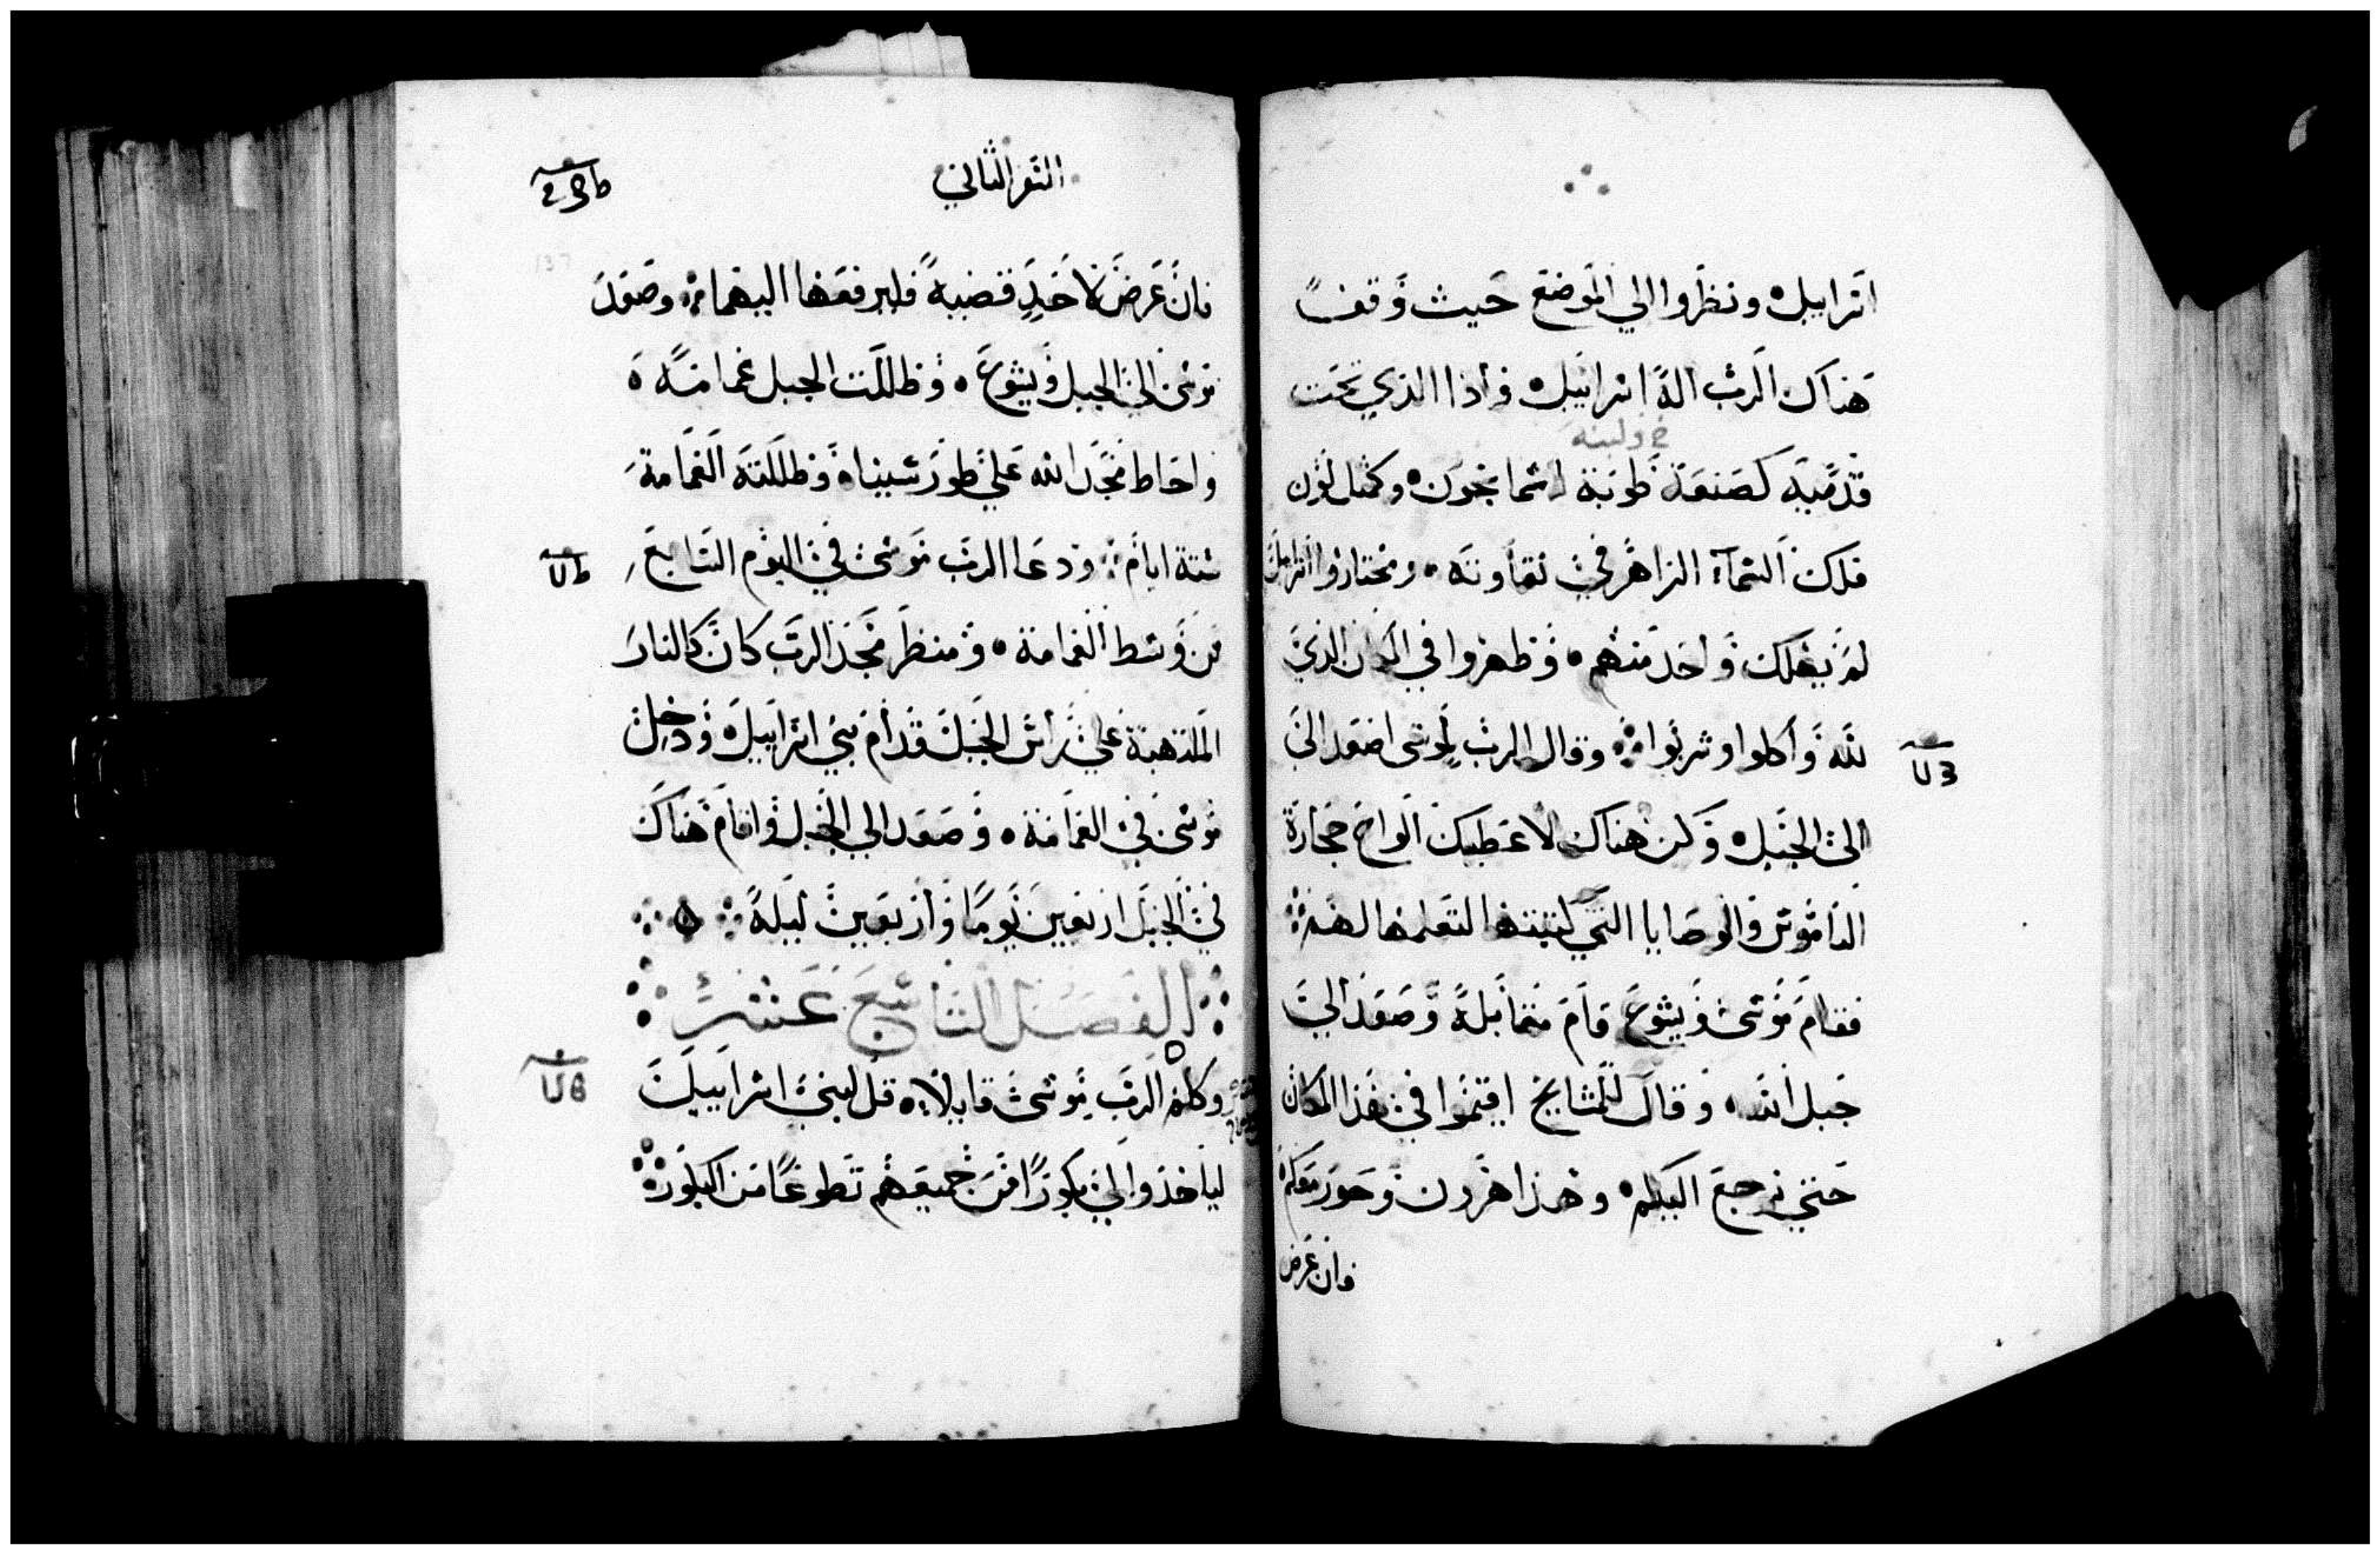 اسراييل ونظروا الي الموضع حيث وقف
هناك الرب اله اسراييل واذا الذي تحت
خ ولبنه
قدميه كصنعة طوبة اسمانجون وكمثل لون
فلك السمآء الزاهر في نقاوته ومختاروا اسراييل
لم يهلك واحد منهم وظهروا في المكان الذي
لله واكلوا وشربوا وقال الرب لموسى اصعد الى
الى الجبل وكن هناك لاعطيك الواح حجارة
الناموس والوصايا التي كتبتها لتعلمها لهم
فقام موسى ويشوع قام مقابله وصعد الى
جبل الله وقال للمشايخ اقيموا في هذا المكان
حتي نرجع اليكم وهذا هرون وحور معكم
وان عرض
السفر الثاني
فان عرض لاحد قضيه فليرفعها اليهما وصعد
موسى الى الجبل ويشوع وظللت الجبل غمامه
واحاط مجد الله علي طور سيناء وظللته الغمامة
ستة ايام ودعا الرب موسى في اليوم السابع
من وسط الغمامة ومنظر مجد الرب كان كالنار
الملتهبة علي راس الجبل قدام بني اسراييل ودخل
موسى في الغمامة وصعد الي الجبل واقام هناك
في الجبل اربعين يوما واربعين ليلة
الفصل التاسع عشر
وكلم الرب موسى قايلا قل لبني اسراييل
لياخذوا لي بكورا من جميعهم تطوعا من البكورة